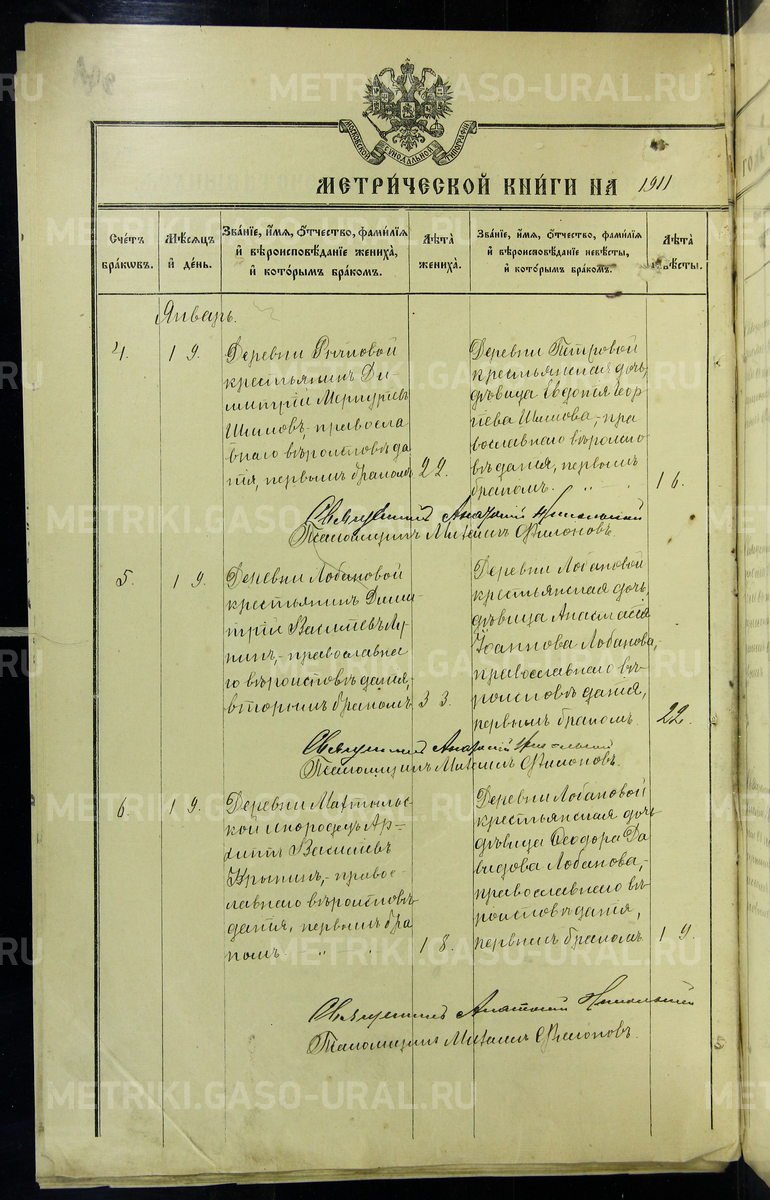 МОСКОВСКОЙ СѴНОДАЛЬНОЙ ТИПОГРАФІИ
МЕТРИ́ЧЕСКОЙ КНИ́ГИ НА 1911
Сче́тъ бра́кѡвъ.
Мѣ́сѧцъ и҆ де́нь.
Зва́нїе, и҆́мѧ, ѻ҆́тчество, фамилїѧ и҆ вѣроисповѣ́данїе жениха̀, и҆ кото́рымъ бра́комъ.
Лѣ́та жениха̀.
Зва́нїе, и҆́мѧ, ѻ҆́тчество, фами́лїѧ и҆ вѣроисповѣ́данїе невѣ́сты, и҆ кото́рымъ бра́комъ.
Лѣ́та невѣ́сты.
Январь.
4.
19.
Деревни
крестьянинъ Ди-
митрій Меркуріевъ
православ
наго вѣроисповѣда
нія, первымъ бракомъ
22
Деревни Петровой
крестьянская дочь,
дѣвица Евдокія Геор
гіева пра
вославнаго вѣроиспо
вѣданія, первымъ
бракомъ.
16.
Священникъ Анатолій Никольскій
Псаломщикъ Михаилъ Филоновъ.
5.
19.
Деревни Лобановой
крестьянинъ Дими
трій Васильевъ Лу
нинъ,- православна
го вѣроисповѣданія,
вторымъ бракомъ
33.
Деревни Лобановой
крестьянская дочь,
дѣвица Анастасія
Іоаннова Лобанова,-
православнаго вѣ-
роисповѣданія,
первымъ бракомъ
22.
Священникъ Анатолій Никольскій
Псаломщикъ Михаилъ Филоновъ.
6.
19.
Деревни
инородецъ Ар=
хиппъ Васильевъ
правос-
лавнаго вѣроисповѣ-
данія, первымъ бра
комъ.
18.
Деревни Лобановой
крестьянская дочь
дѣвица Ѳеодора Да
видова Лобанова,-
православнаго вѣ-
роисповѣданія,
первымъ бракомъ
19.
Священникъ Анатолій Никольскій
Псаломщикъ Михаилъ Филоновъ.
METRIKI.GASO-URAL.RU